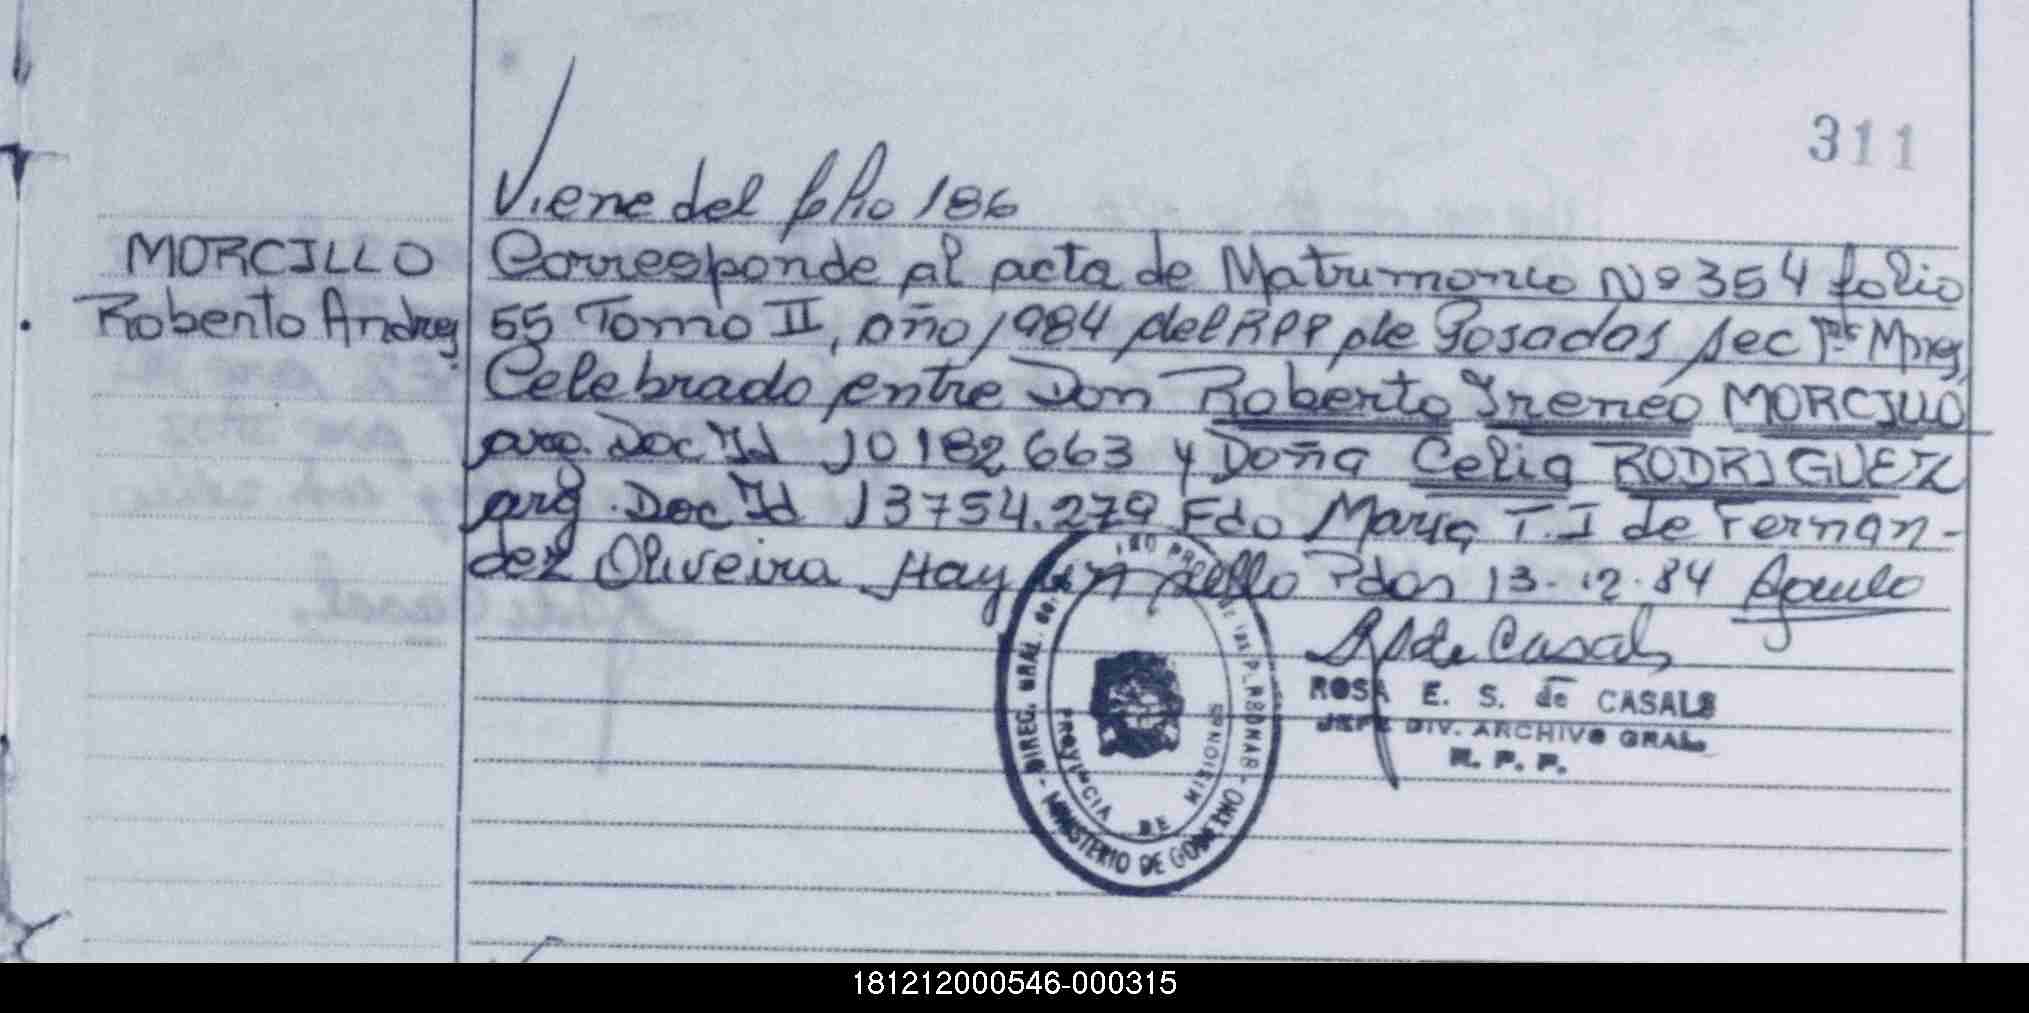 311
Viene del folio 186
MORCILLO
Roberto Andres
Corresponde al acta de Matrimonio Nº 354 folio
55 Tomo II, año 1984 del RPP de Posadas sec 1ra Mnes
Celebrado entre Don Roberto Ireneo MORCILLO
arg. Doc Id 10182663 y Doña Celia RODRIGUEZ
arg. Doc Id 13754.279 Fdo Maria T. I de Fernan-
dez Oliveira Hay un sello Pdas 13-12-84
ROSA E. S. de CASALS
JEFE DIV. ARCHIVO GRAL.
R. P. P.
DIREC. GRAL. del
MINISTERIO DE GOBIERNO
PROVINCIA DE MISIONES
181212000546-000315